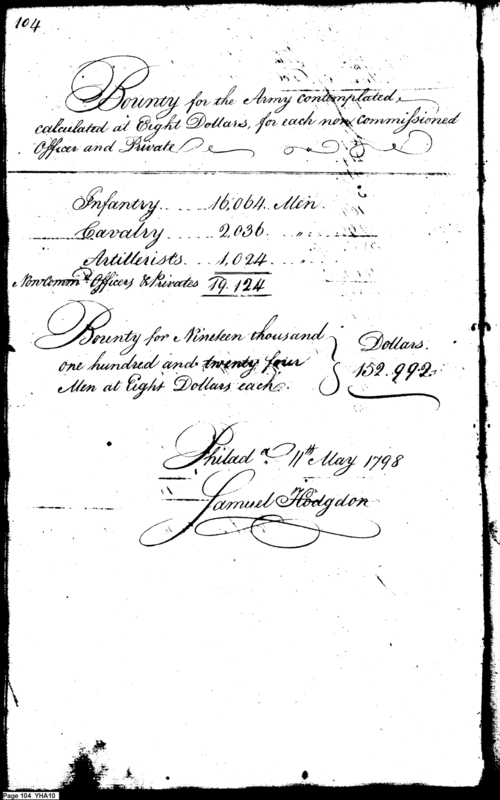 104
Bounty for the Army contemplated,
calculated at Eight Dollars, for each non commissioned
Officer and Private
Infantry .... 16,064 .. Men.
Cavalry .... 2,036 .. "
Artillerists ... 1,024 .. "
Non Comm.d Officers & Privates 19.124
Bounty for Nineteen thousand
one hundred and twenty four
Men at Eight Dollars each
Dollars.
152.992.
Philad.a 11th May 1798
Samuel Hodgdon
Page 104 YHA10